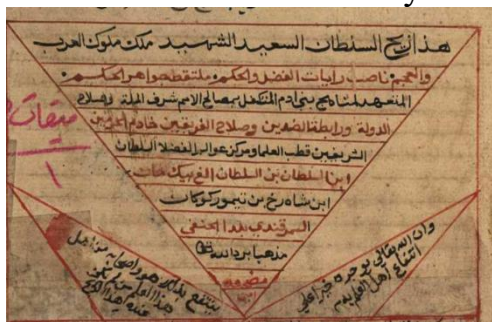 هذا زيج السلطان السعيد الشهيد ملك ملوك العرب
والعجم ناصب رايات الفضل والحكم ملتقط جواهر الحكم
المتعهد لمصالح بني ادم المتكفل بمصالح الامم شرف الملة وفلاح
الدولة ورابطة الضدين وصلاح الفريقين خادم الحرمين
الشريفين قطب العلما ومركز عوالم الفضلا السلطان
ابن السلطان بن السلطان الغ بيك خان
ابن شاه رخ بن تيمور كوركان
السمرقندي بلدا الحنفي
مذهبا برد الله
مضجعه
وان الله تعالى يوجره خيرا على
انتفاع اهل العلم به
ينتفع بذلك هو واصحابه من اهل
هذا العلم من
ميقات
١